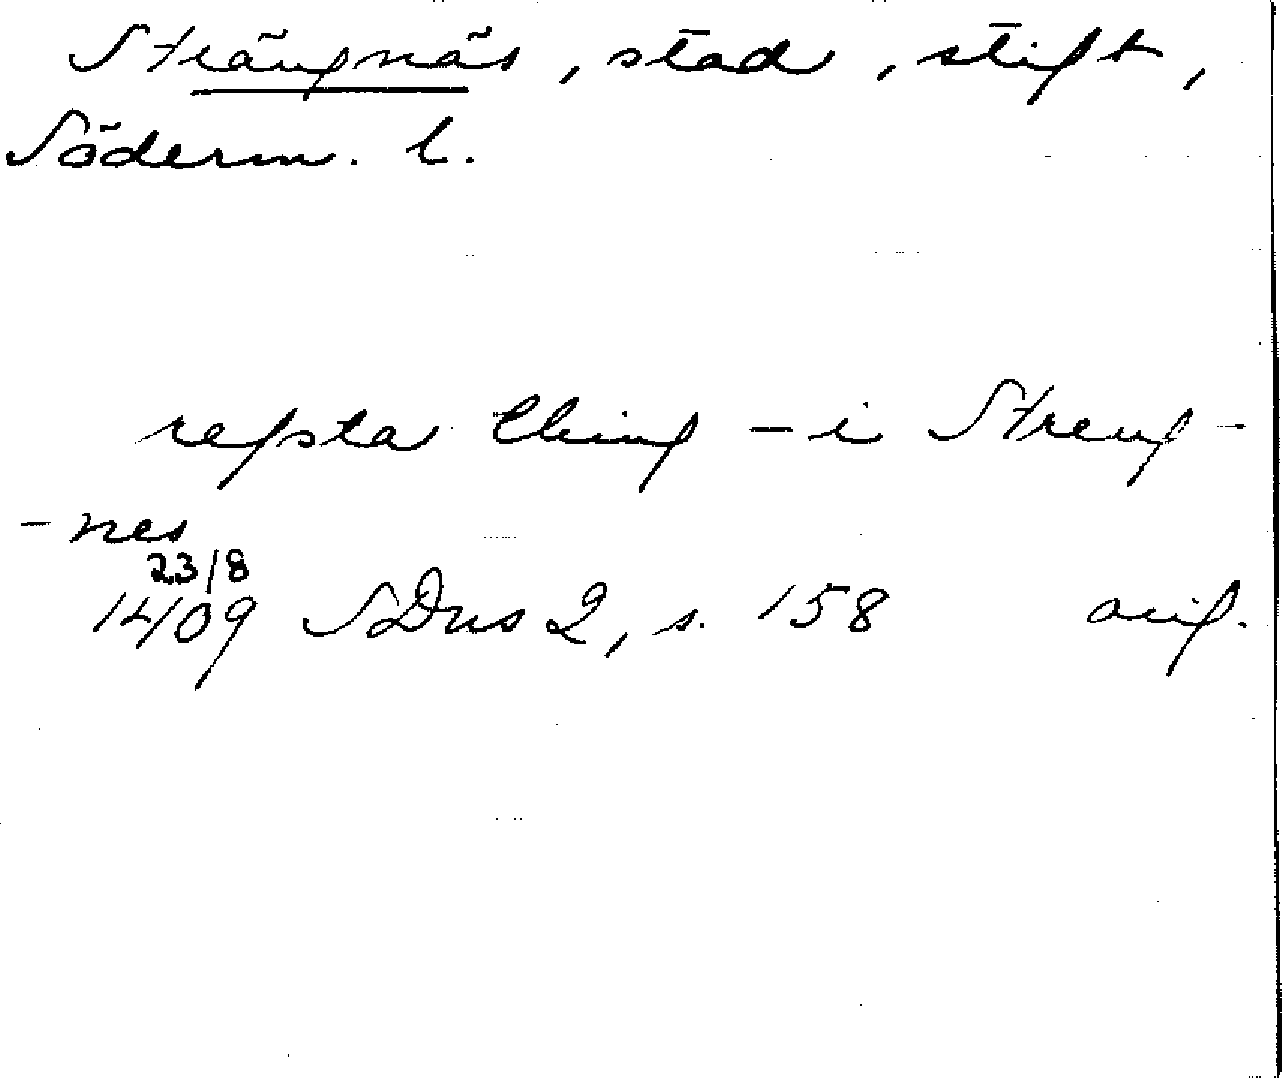 Strängnäs, stad, stift,
Söderm. l.
refsta thing - i Streng-
-nes
23/8
1409 SDns 2, s. 158 orig.